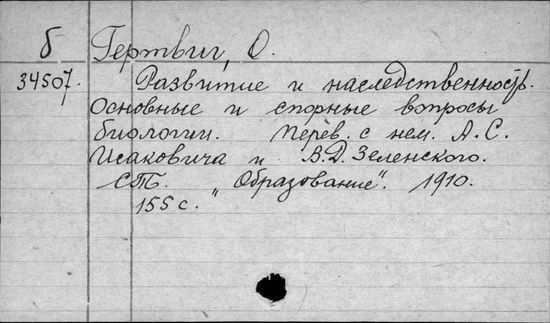 б Гертвиг, О.
34507. Развитие и наследственность.
Основные и спорные вопросы
биологии. Перев. с нем. А.С.
Исаковича и В.Д. Зеленского.
СПБ. "Образование". 1910.
155 с.